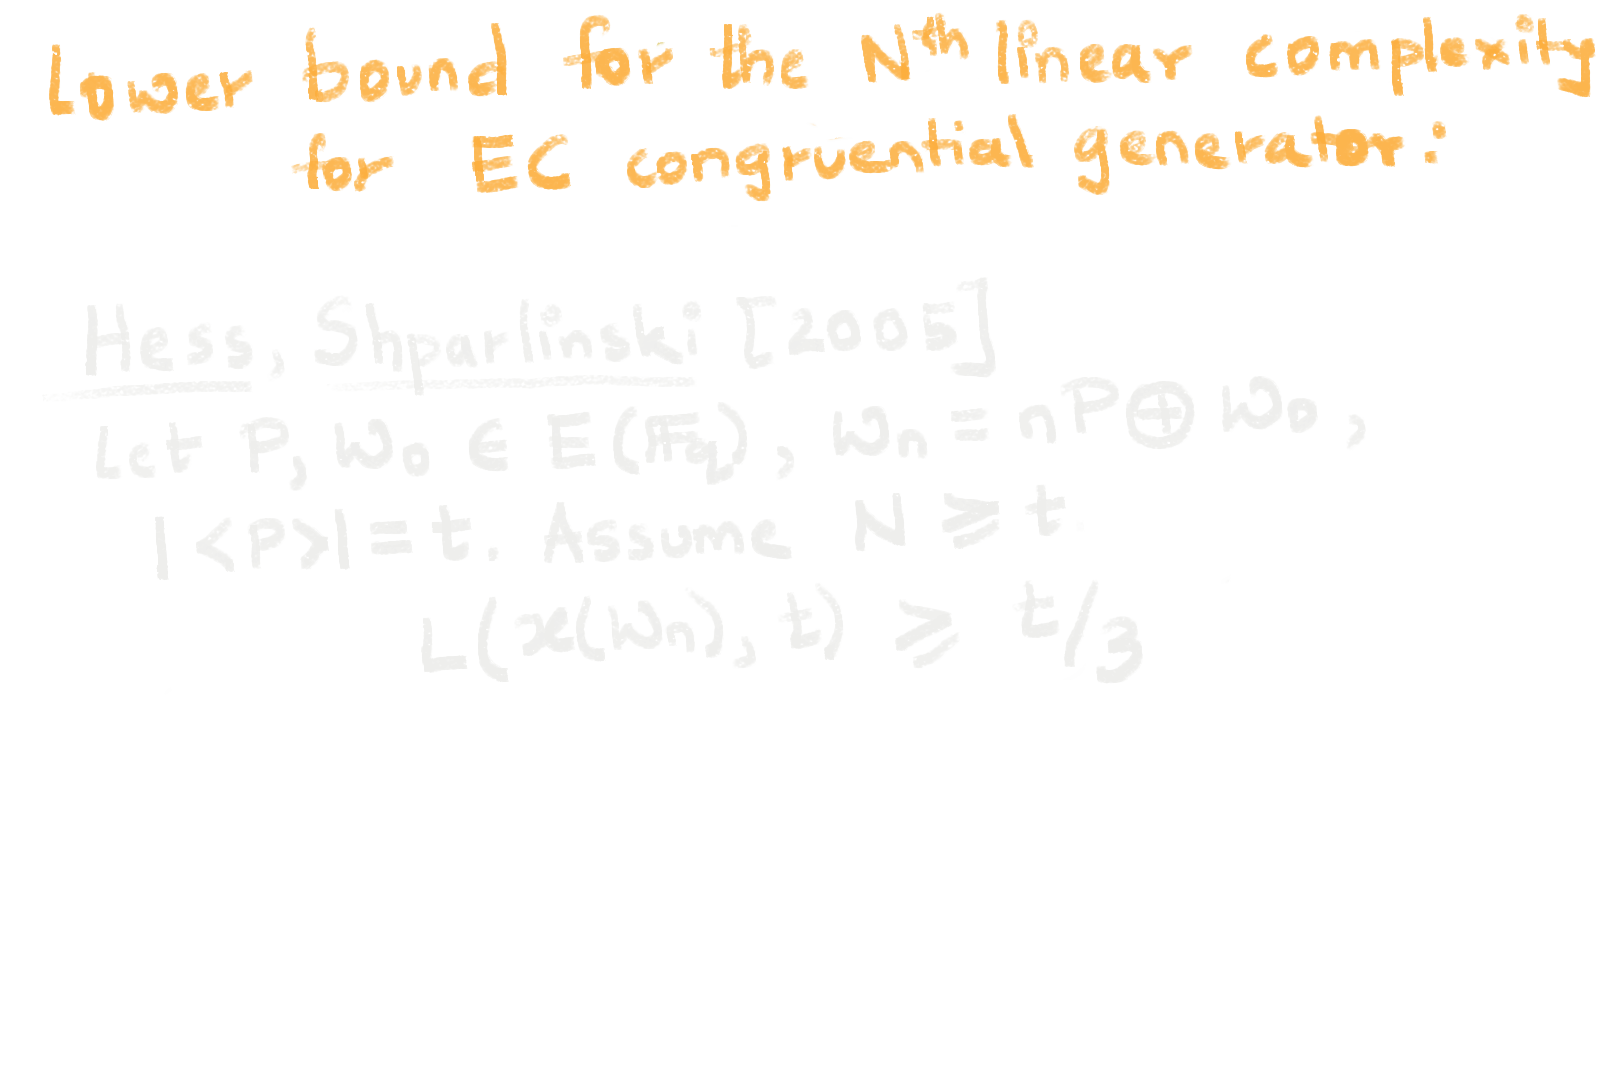 Lower bound for the Nth linear complexity
for EC congruential generator:
Hess, Shparlinski [2005]
Let P, W₀ ∈ E(𝔽q), Wn = nP⊕W₀,
|<P>| = t. Assume N ⩾ t.
L(x(Wn), t) ⩾ t/3